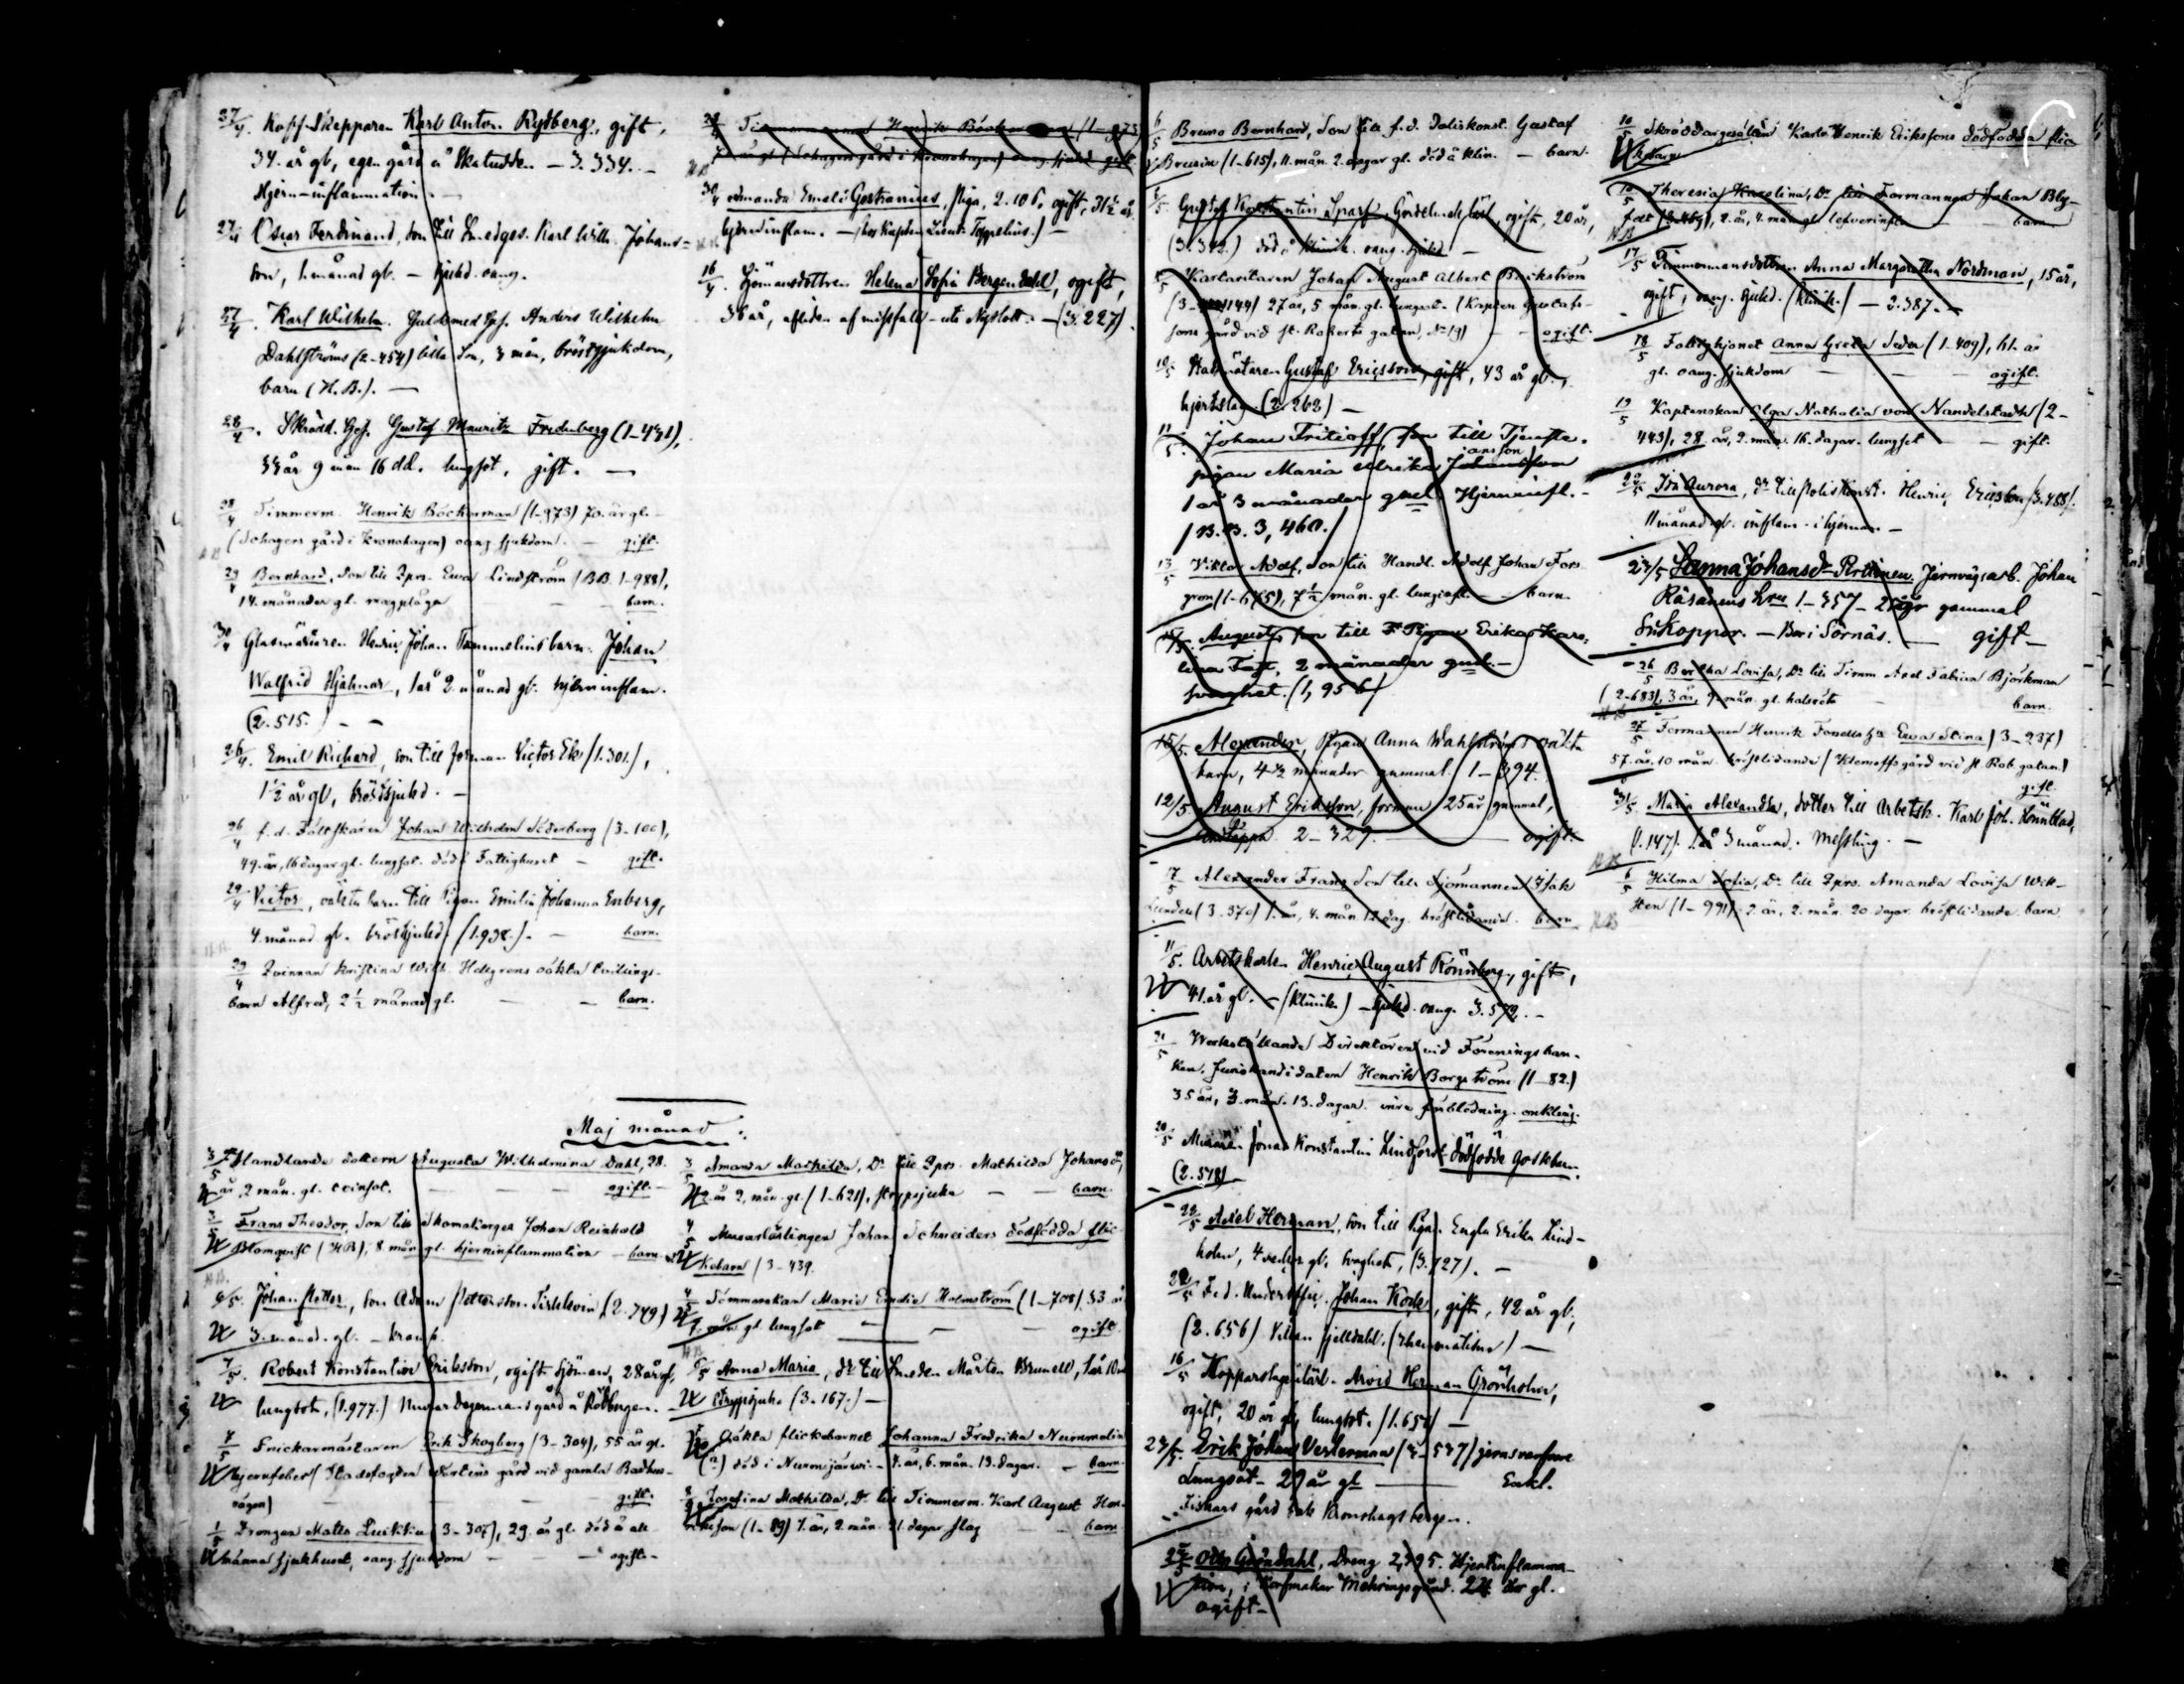 27/4. Koff.Skepparen Karl Anton Rydberg, gift,
34 år gl, egen gård å Skatudden — 3.334. —
Hjern-inflammation —
27/4 Oscar Ferdinand, son till Smedges. Karl Wilh. Johans-
son, 1. månad gl. — sjukd. oang.
27/4. Karl Wilhelm. Guldsmed Gs. Anders Wilhelm
Dahlströms (2-454) lilla son, 3 mån, bröstsjukdom,
barn (H.B.). —
28/4. Skrädd. Ges. Gustaf Mauritz Fredenberg (1-471),
33 år 9 mån 16 dd. lungsot, gift. —
28/4 Timmerm. Henrik Böckerman (1-973) 70. år gl. —
(Schagers gård i Kronohagen) oang. sjukdom. — gift.
29/4 Bernhard, Son till Qprs. Ewa Lindström (BB. 1-988),
14. månader gl. magplåga — barn.
30/4 Glasmästaren Henric Johan Tammelins barn. Johan
Walfrid Hjalmar, 1 år 2. månad gl. hjerninflam.
(2.515.) — —
26/4. Emil Richard, son till Forman Victor Ek (1.301.),
1½ år gl, bröstsjukd. —
26/4 f. d. Fältskären Johan Wilhelm Söderberg (3-100),
49. år, 16 dagar gl. lungsot. död i Fattighuset — gift.
29/4 Victor, oäkta barn till Pigan Emilia Johanna Enberg,
4. månad gl. bröstsjukd. (1.938.). — barn.
29/4 Qvinnan Kristina Wilh. Hellgrens oäkta tvillings-
barn Alfred, 2½ månad gl. — — barn.
28/4 Timmerman Henrik Böckerman (1-973
(Schagers gård i Kronohagen) oang. sjukd. gift.
30/4 Amanda Emeli Gostranius, Piga, 2.106, ogift, 31½ år,
hjerninflam. — (hos Kapten Lieut. Toppelius.) —
16/4. Sjömansdottren Helena Sofia Bergendahl, ogift,
36 år, afliden af missfall — uti Nyslott. — (3.227).
Maj månad:
3/5 Handlande dottern Augusta Wilhelmina Dahl, 28.
år, 2 mån. gl. — — — ogift. —
3/5 Frans Theodor, Son till Skomakarges Johan Reinhold
Blomqvist (HB), 8. mån gl. hjerninflammation — barn.
4/5. Johan Petter, son Adam Pettersson (2.749)
3. månad. gl. — kramp.
7/5. Robert Konstantin Eriksson, ogift Sjöman, 28 år gl,
lungsot, (1.977.) Murar Degermans gård å Rödbergen.
7/5 Snickarmästaren Erik Skogberg (3-304), 55 år gl.
hjernfeber (Stadsfogden gård vid gamla Badhus-
vägen) — — — gift.
1/5 Drängen Matts (3-307), 29. år gl. död å all-
männa sjukhuset, oang. sjukdom — — ogift. —
3/5 Amanda Mathilda, Dr till Qprs. Mathilda Johansdr,
2 år 2. mån. gl. (1-621), strypsjuka — — barn.
4/5 Johan Schneiders dödfödda flic-
kebarn (3-439.
4/5 Sömmerskan Maria Emelie Holmström (1-708) 33 år
7. mån. gl. lungsot — — ogift.
5/5 Anna Maria, dr till Smeden Mårten Brunell, 1 år 10 m
Strypsjuk. (3-167.) —
Oäkta flickebarnet Johanna Fredrika Nurmmelin
(2) död i Nurmijärwi. — 7. år, 6. mån. 13. dagar. — barn.
8/5 Josefina Mathilda, Dr till Timmerm. Karl August Hen-
riksson (1-89) 7. år, 2. mån. 21. dagar slag — barn.
6/5 Bruno Bernhard, Son till f.d. Poliskonst. Gustaf
Brusin (1-615), 11. mån. 2. dagar gl. död å klin. — barn.
5/5. Gustaf Konstantin Sparf, Gördelmakelärl, ogift, 20 år,
(3.342.) död å klinik. oang. sjukd —
Kartaritaren Johan August Albert Bäckström
(3-144) 27 år, 5 mån. gl. lungsot. (Kapten Gustafs-
sons gård vid st. Roberts gatan, No 19) — ogift.
10/5 Stadsmätaren Gustaf Ericsson, gift, 43 år gl.,
hjertslag. (2.262) —
11/5. Johan Fritioff, son till Tjenste-
pigan Maria Ulrika Johansson
1 år 3 månader gml. Hjerninfl. —
(B.B. 3, 460.)
13/5 Viktor Adolf, Son till Handl. Adolf Johan Fors
gren (1-675), 7½ mån. gl. lunginfl. — barn.
15/5. August, son till F. Pigan Erika Karo-
lina Fast, 2 månader gml. —
svaghet. (1, 956)
15/5. Alexander, Pigan Anna Wahlströms oäkta
barn, 4½ månader gammal. (1-394.
12/5. August Eriksson, forman 25 år gammal,
2-329. — ogift.
17/5 Alexander Frans Son till Sjömannen Isak
Lundell (3.370) 1. år, 4. mån 12 dag. bröstlidande. barn
11/5. Arbetskarlen Henric August Rönnberg, gift,
41 år gl. — (klinik.) — sjukd. oang. 3.572. —
21/5 Werkställande Direktören vid Föreningsban-
ken, Juriskandidaten Henrik Borgström (1-82.)
35 år, 3. mån. 13. dagar. inre förblödning. enkling.
20/5 Muraren Jonas Konstantin Lindfors dödfödde gossebarn.
(2.578)
22/5 Axel Herman, son till Pigan Engla Erika Lind-
holm, 4 veckor gl, svaghet, (3.727). —
22/5 F. d. Underoffic. Johan Kock, gift, 42 år gl,
(2.656) Villan Fjelldahl. (rheumatism) —
16/5 Kopparslagarelärl. Arvid Herman Grönholm,
ogift, 20 år gl, lungsot. (1.654) —
23/5. Erik Johan Vesterman (3-537) jernvarfvare
Lungsot — 29 år gl — Enkl.
gård Kronohagsbergen.
25/5 Otto Gröndahl, Dreng 2,395. Hjertinflamma-
tion, i Korfmakar Mehrings gård. 24 år gl.
ogift —
10/5 Skräddargesällen Karl Henrik Erikssons dödfödda flic
kebarn
10/5 Theresia Karolina, Dr till Formannen Johan Bly-
(3-469), 2. år, 4. mån gl lefverinfl. — barn
17/5 Timmermansdottren Anna Margaretha Nordman, 15 år,
ogift, oang. sjukd. (klinik.) — 2.387. —
18/5 Fattighjonet Anna Greta Seder (1-409), 61. år
gl. oang. sjukdom — — ogift.
19/5 Kaptenskan Olga Nathalia von Nandelstadh (2-
443), 28 år, 2. mån. 16. dagar. lungsot — — gift.
22/5 Ida Aurora, dr till Poliskonst. Henric Ericsson (3.488).
11 månad gl. inflam. i hjernan —
23/5 Sanna Johansdr Jernvägsarb. Johan
Räsänens hru 1-357- 25 år gammal
Smkoppor. — Bor i Sörnäs. — gift —
26/5 Bertha Lovisa, Dr till Timm Axel Fabian Björkman
(2-683), 3 år, 9. mån. gl. halsröta — barn.
27/5 Formannen Henrik Forsells hu Ewa Stina (3-237)
57. år. 10 mån. bröstlidande (Klemeffs gård vid st. Rob. gatan)
gift.
31/5 Maria Alexandra, dotter till Arbetsk. Karl Joh. Lönnblad,
(1.147). 1 år 3 månad. Messling. —
6/5 Hilma Sofia, Dr till Qprs. Amanda Lovisa Wik-
sten (1-991). 2. år, 2. mån. 20 dagar. bröstlidande. barn